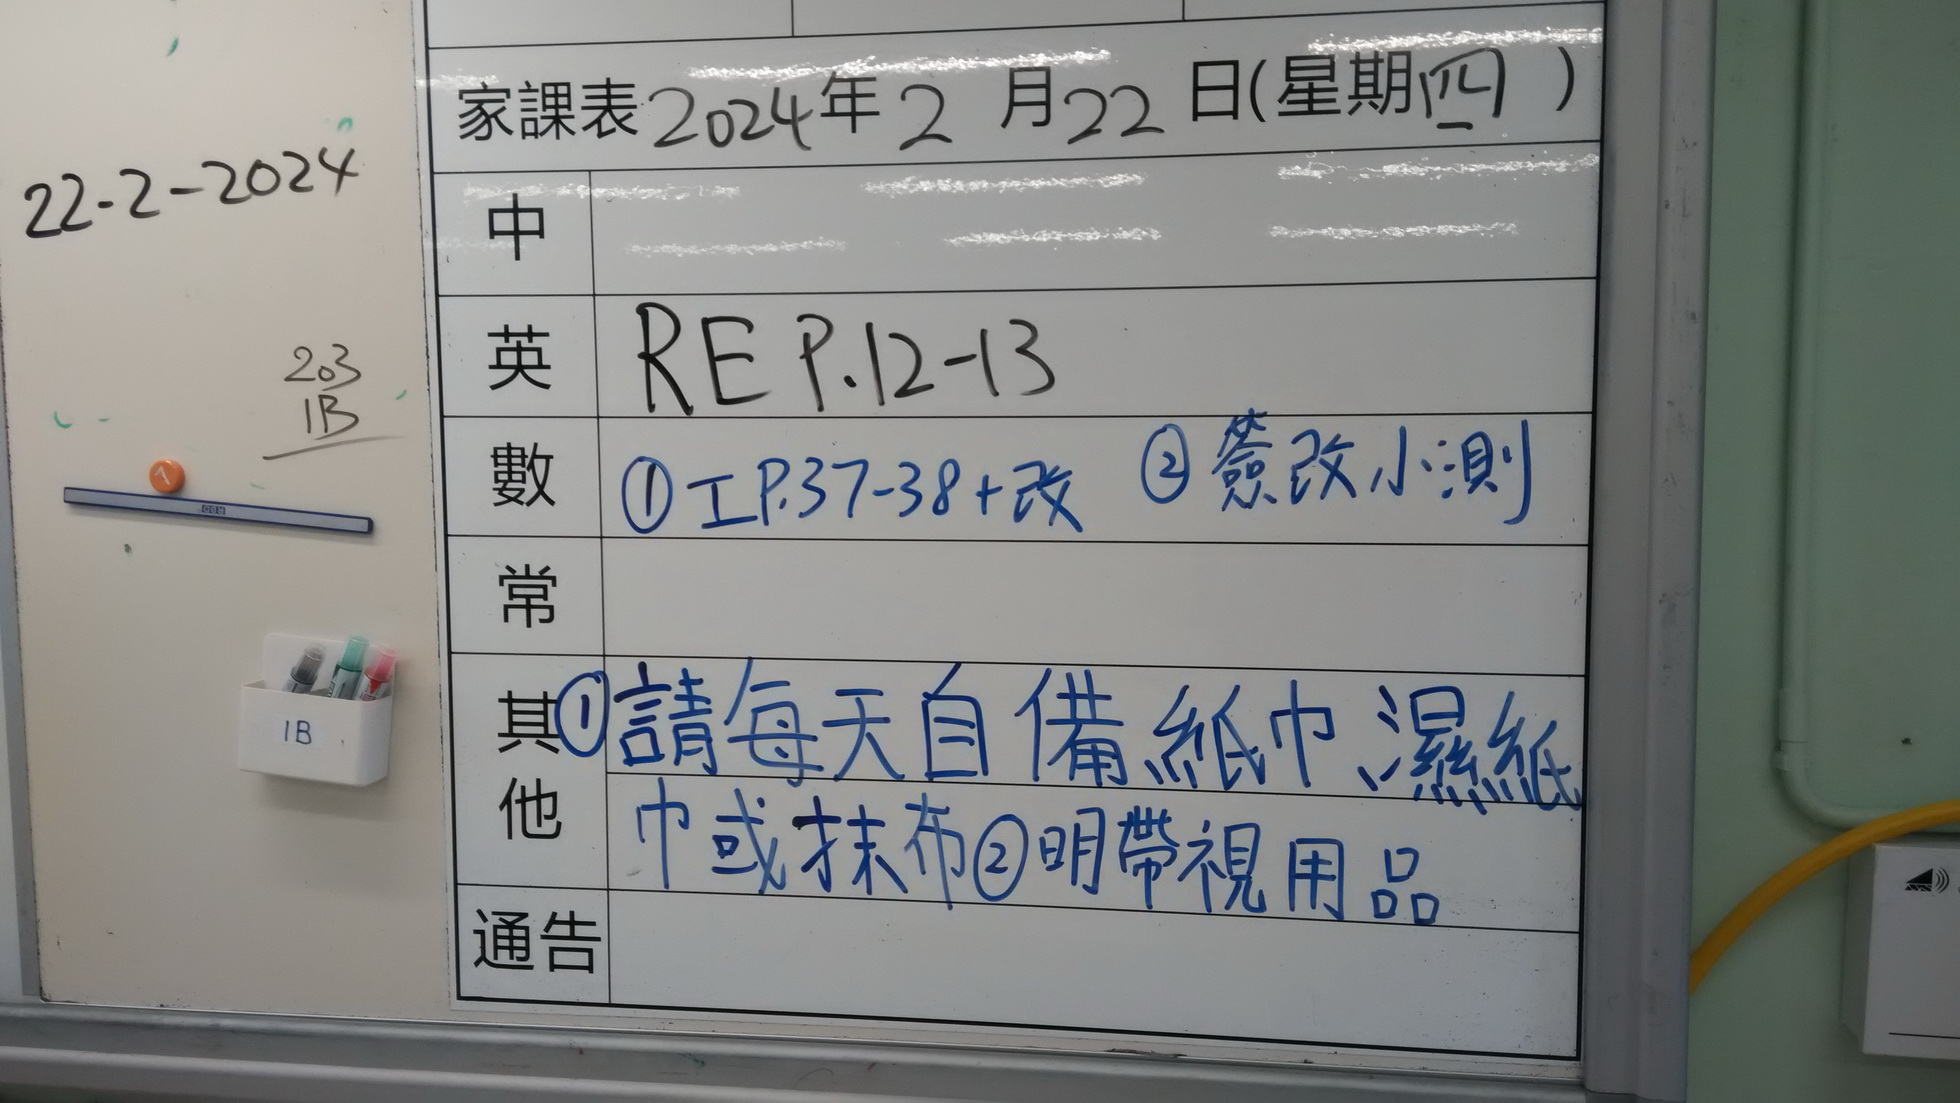 22-2-2024
203
1B
1B
家課表2024年2月22日(星期四)
中
英 RE P.12-13
數 ①工P.37-38+改 ②簽改小測
常
其他 ①請每天自備紙巾、濕紙
巾或抹布②明帶視用品
通告